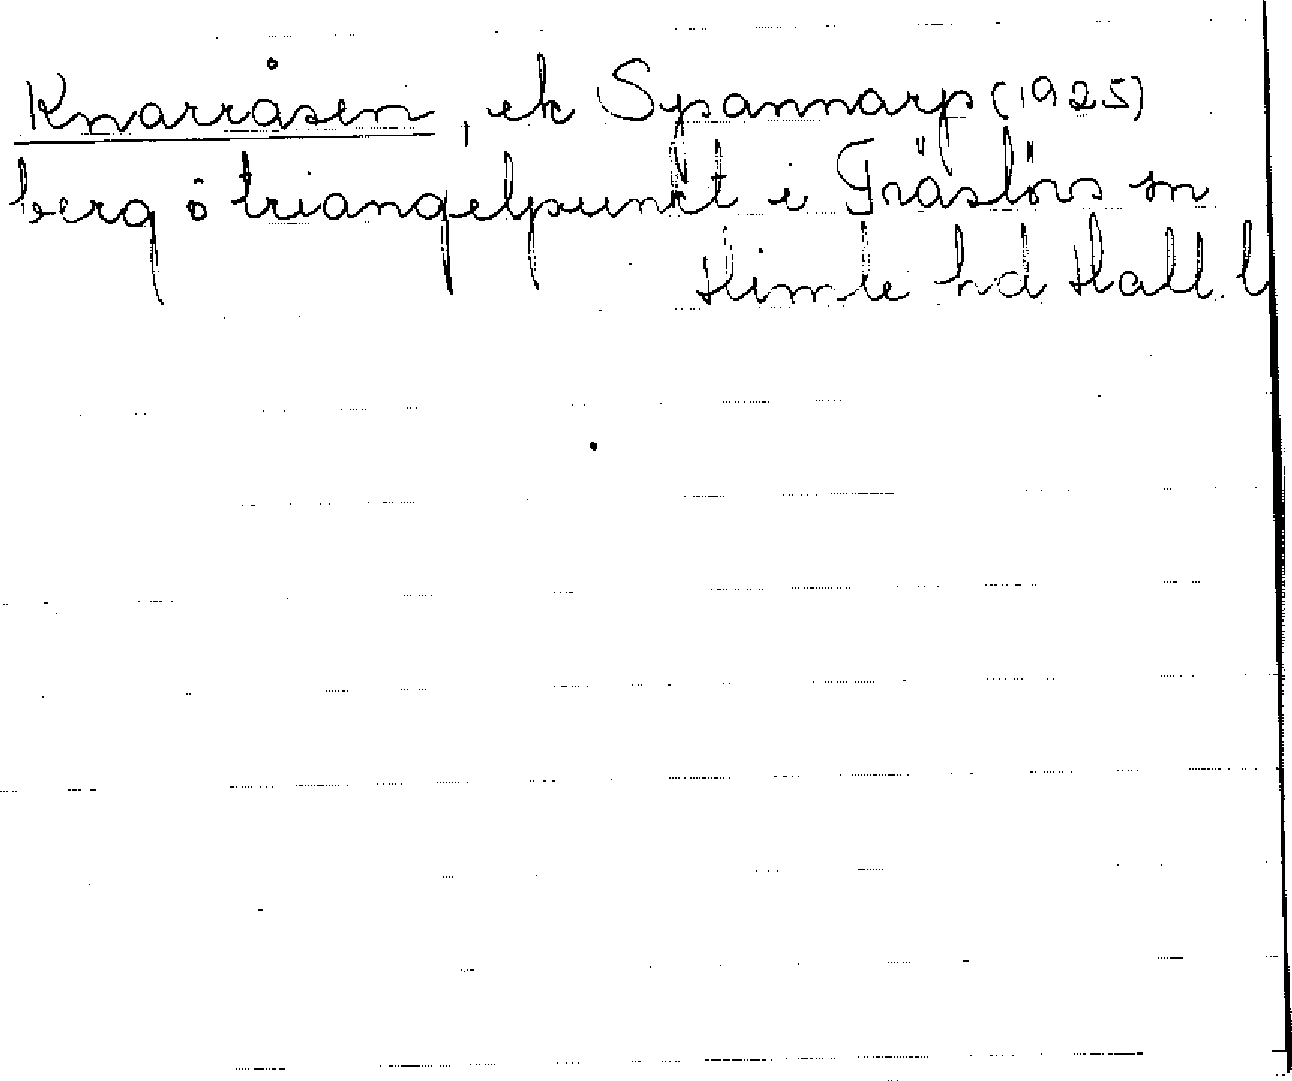 Knarråsen, ek Spannarp (1925)
berg o triangelpunkt i Träslövs sn
Himle hd Hall. l